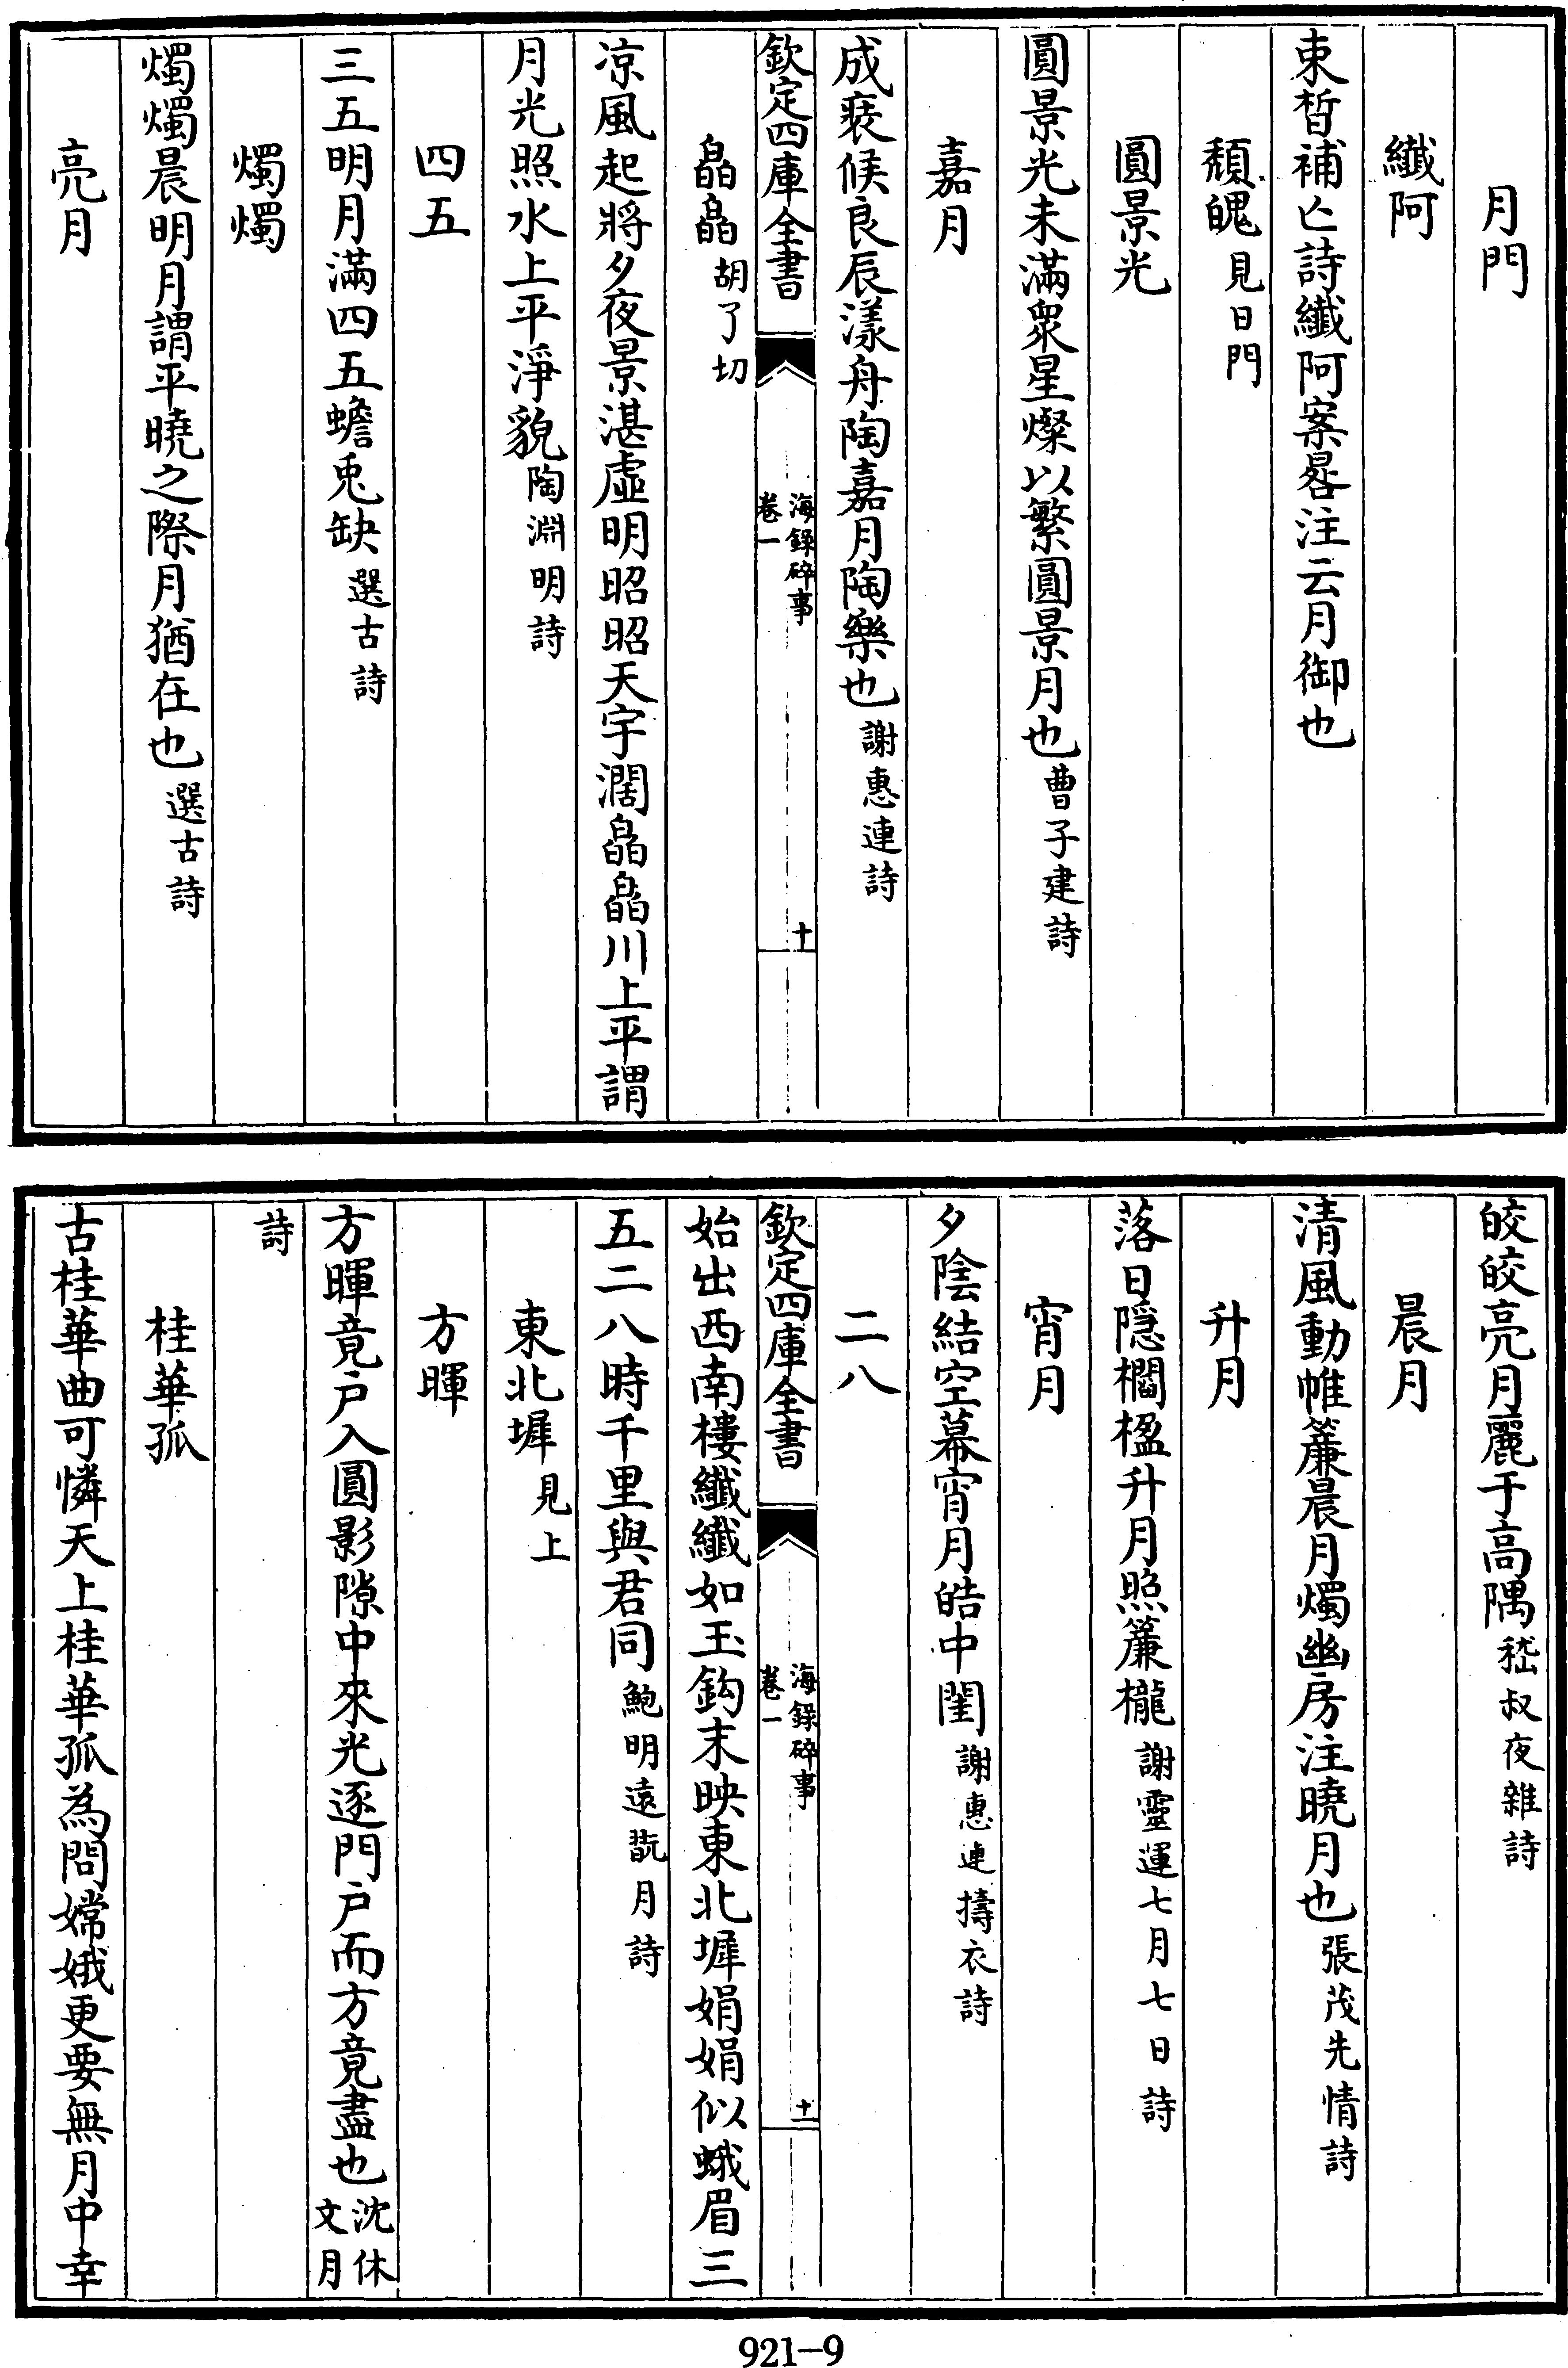 月門
纖阿
束晳補亡詩纖阿案晷注云月御也
頽魄見日門
圓景光
圓景光未滿衆星燦以繁圓景月也曹子建詩
嘉月
成裝候良辰漾舟陶嘉月陶樂也謝惠連詩
欽定四庫全書
海錄碎事
卷一
十
皛皛胡了切
凉風起將夕夜景湛虛明昭昭天宇濶皛皛川上平謂
月光照水上平淨貌陶淵明詩
四五
三五明月滿四五蟾兎缺選古詩
燭燭
燭燭晨明月謂平曉之際月猶在也選古詩
亮月
皎皎亮月麗于高隅嵇叔夜雜詩
晨月
清風動帷簾晨月燭幽房注曉月也張茂先情詩
升月
落日隱櫩楹升月照簾櫳謝靈運七月七日詩
宵月
夕陰結空幕宵月皓中閨謝惠連擣衣詩
二八
欽定四庫全書
海錄碎事
卷一
十一
始出西南樓纖纖如玉鈎末映東北墀娟娟似蛾眉三
五二八時千里與君同鮑明遠翫月詩
東北墀見上
方暉
方暉竟户入圓影隙中來光逐門户而方竟盡也沈休文月
詩
桂華孤
古桂華曲可憐天上桂華孤為問嫦娥更要無月中幸
921-9